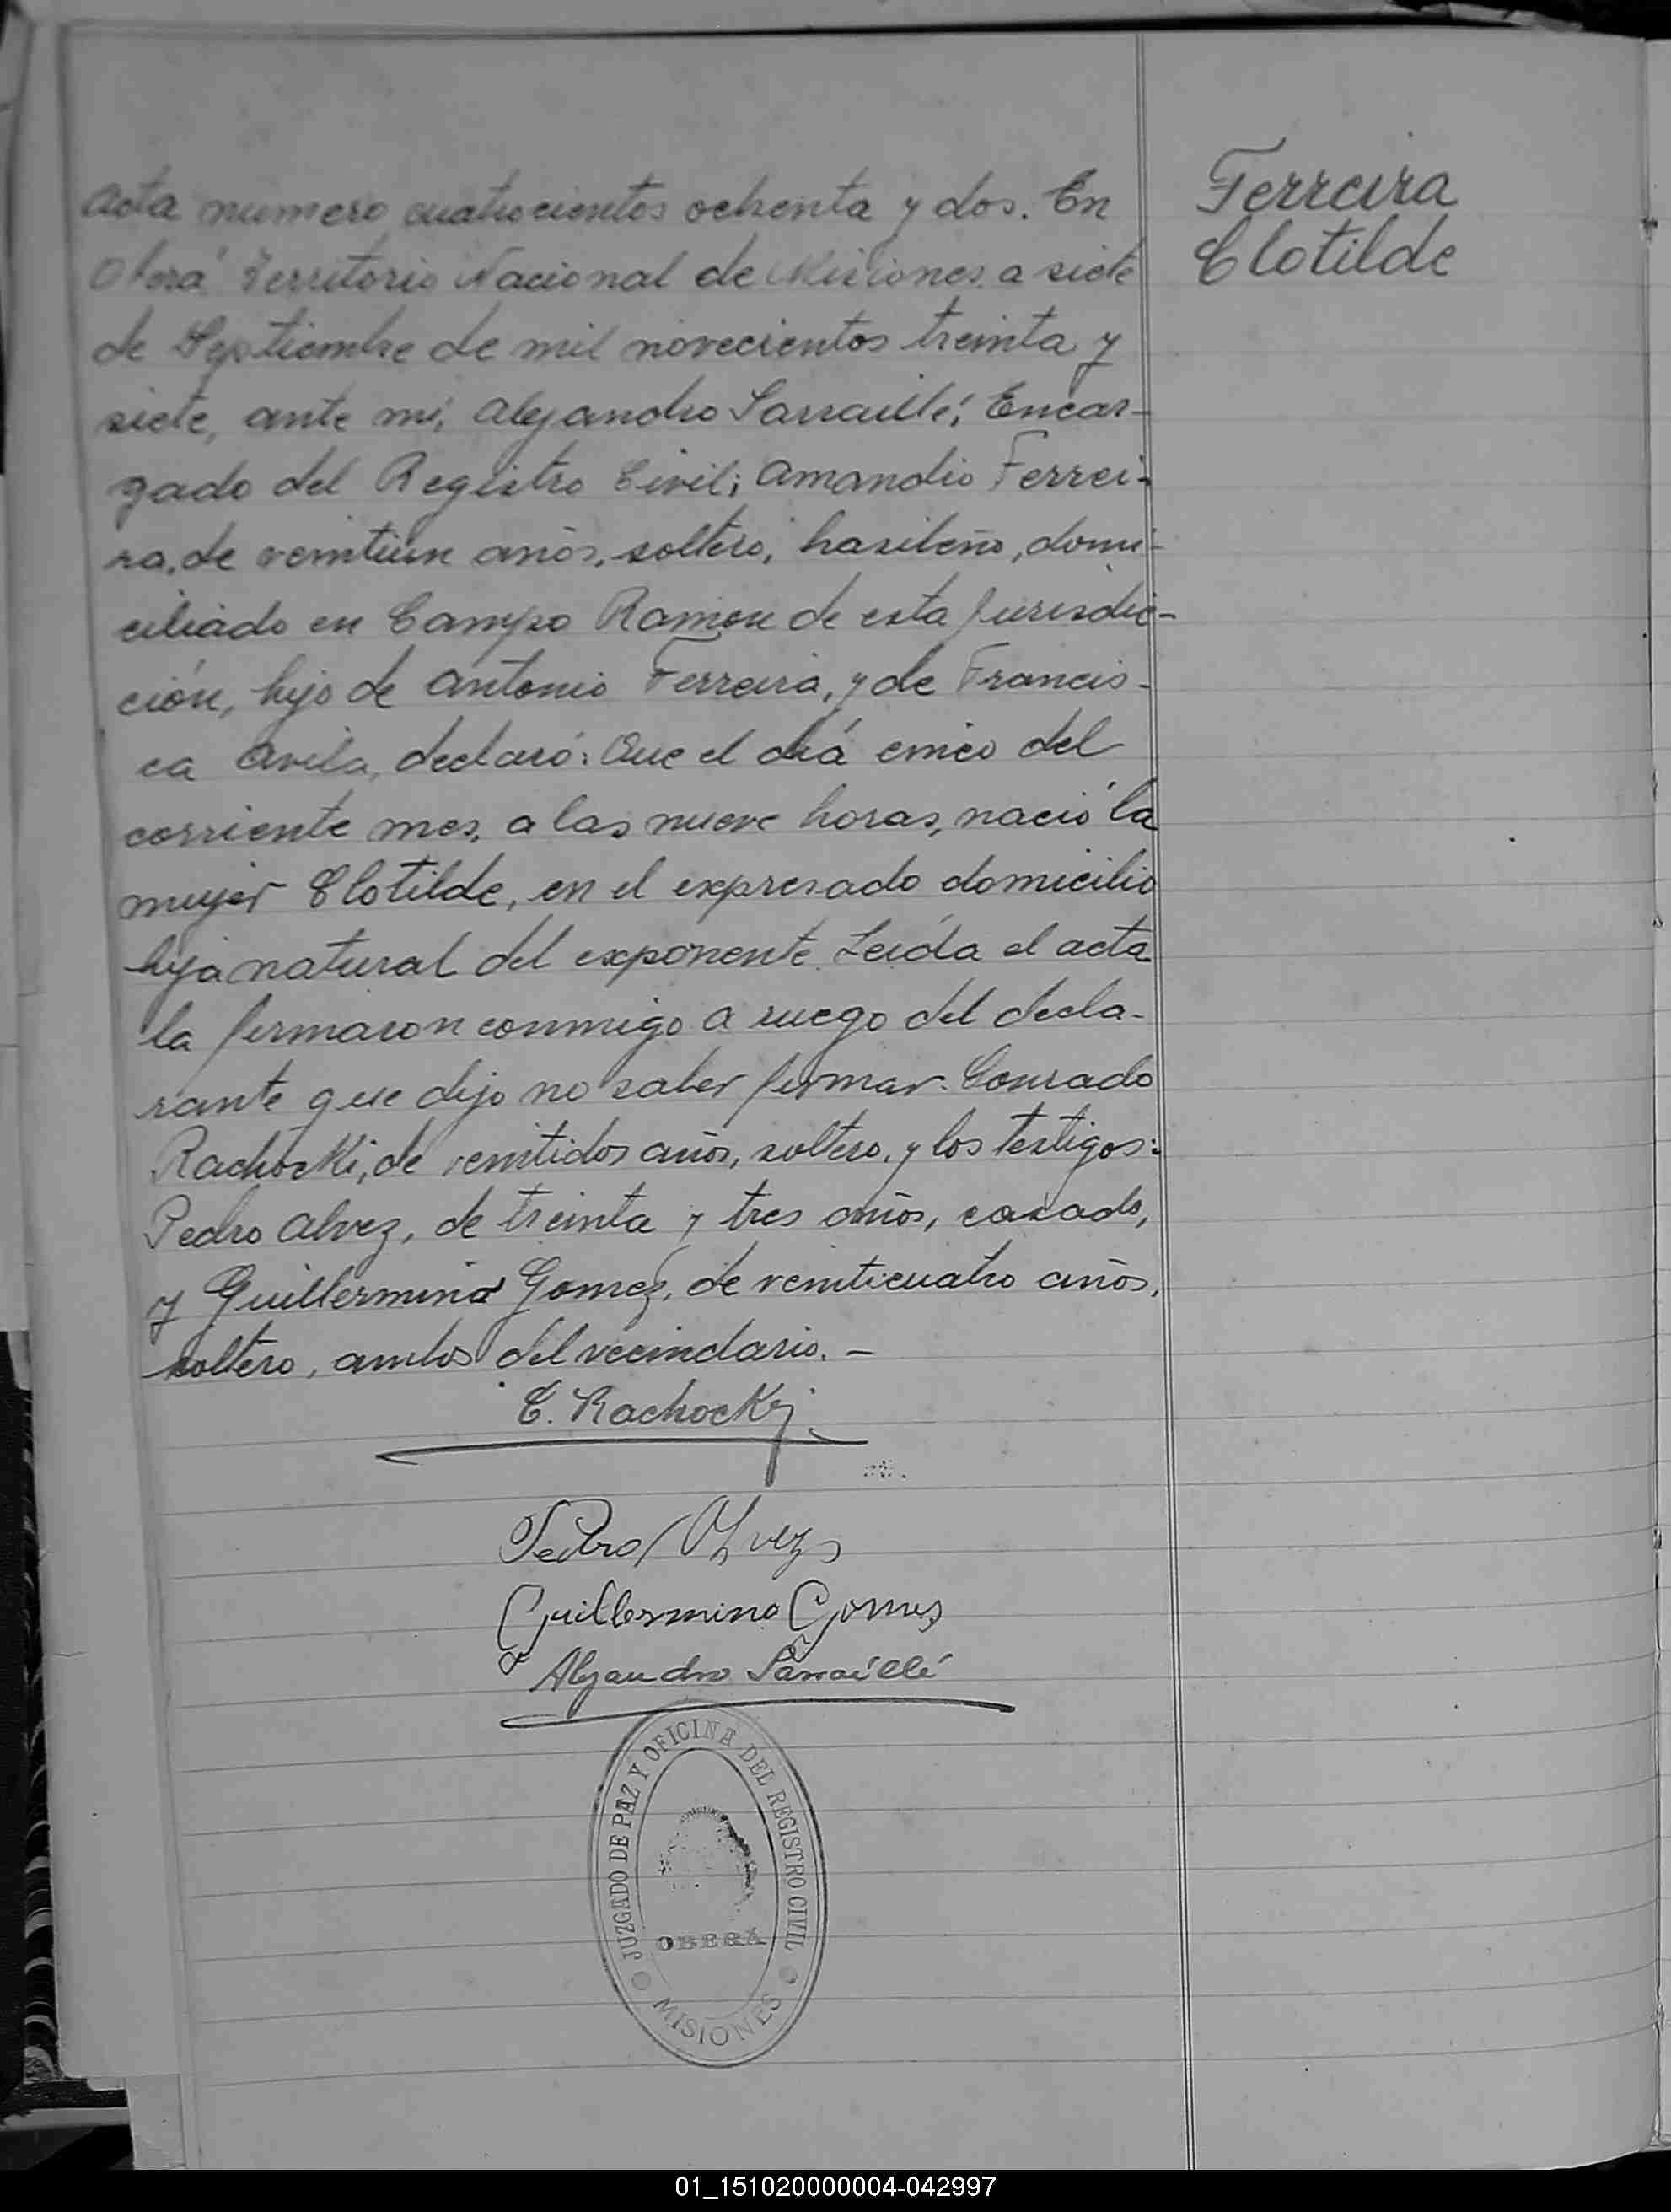 Acta numero cuatrocientos ochenta y dos. En
Oberá Territorio Nacional de Misiones, a siete
de Septiembre de mil novecientos treinta y
siete, ante mi, Alejandro Sarraillé, Encar-
gado del Registro Civil; Amandio Ferrei-
ra, de veintiun años, soltero, brasileño, domi-
ciliado en Campo Ramon de esta jurisdic-
ción, hijo de Antonio Ferreira, y de Francis-
ca Avila, declaró: Que el día cinco del
corriente mes, a las nueve horas, nació la
mujer Clotilde, en el expresado domicilio
hija natural del exponente. Leída el acta
la firmaron conmigo a ruego del decla-
rante que dijo no saber firmar. Conrado
Rachocki, de veintidos años, soltero, y los testigos:
Pedro Alvez, de treinta y tres años, casado,
y Guillermino Gomez, de veinticuatro años,
soltero, ambos del vecindario. -
Ferreira
Clotilde
C. Rachocki
Pedro Alvez
Guillermino Gomes
Alejandro Sarraillé
JUZGADO DE PAZ Y OFICINA DEL REGISTRO CIVIL
OBERÁ
MISIONES
01_151020000004-042997